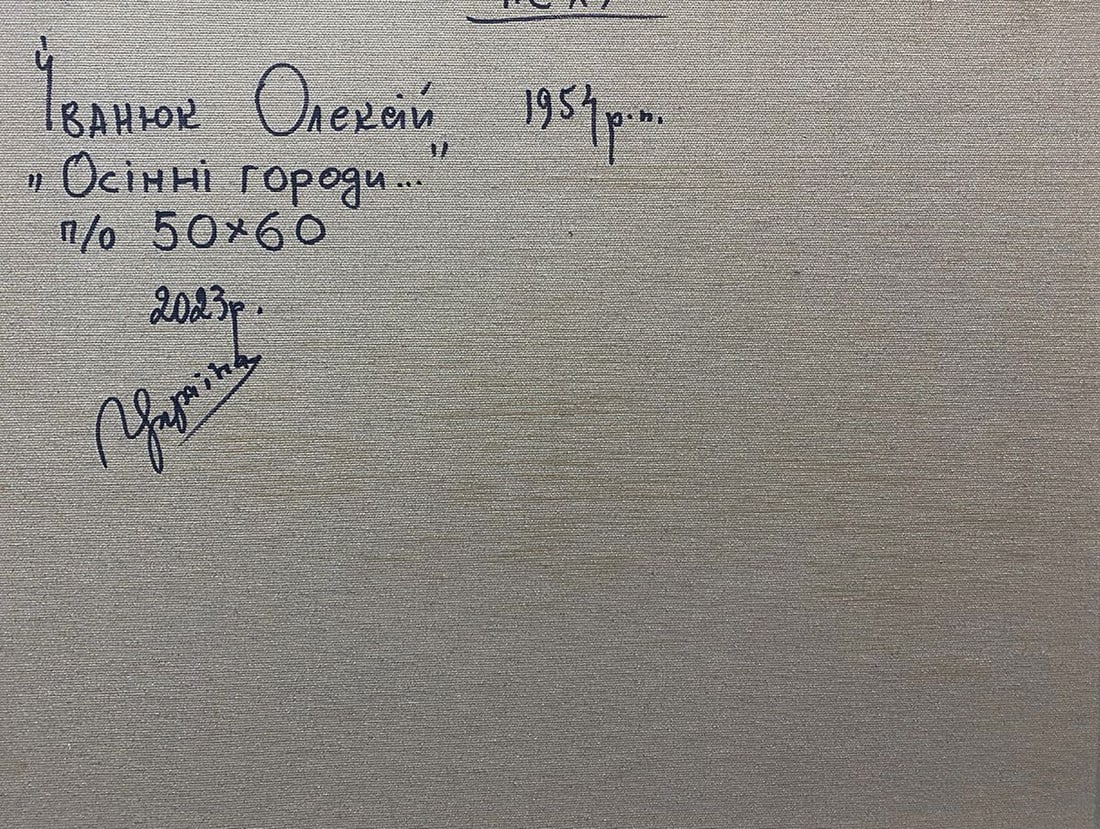 Іванюк Олексій 1954 р.н.
"Осінні городи..."
п/о 50×60
2023р.
Україна